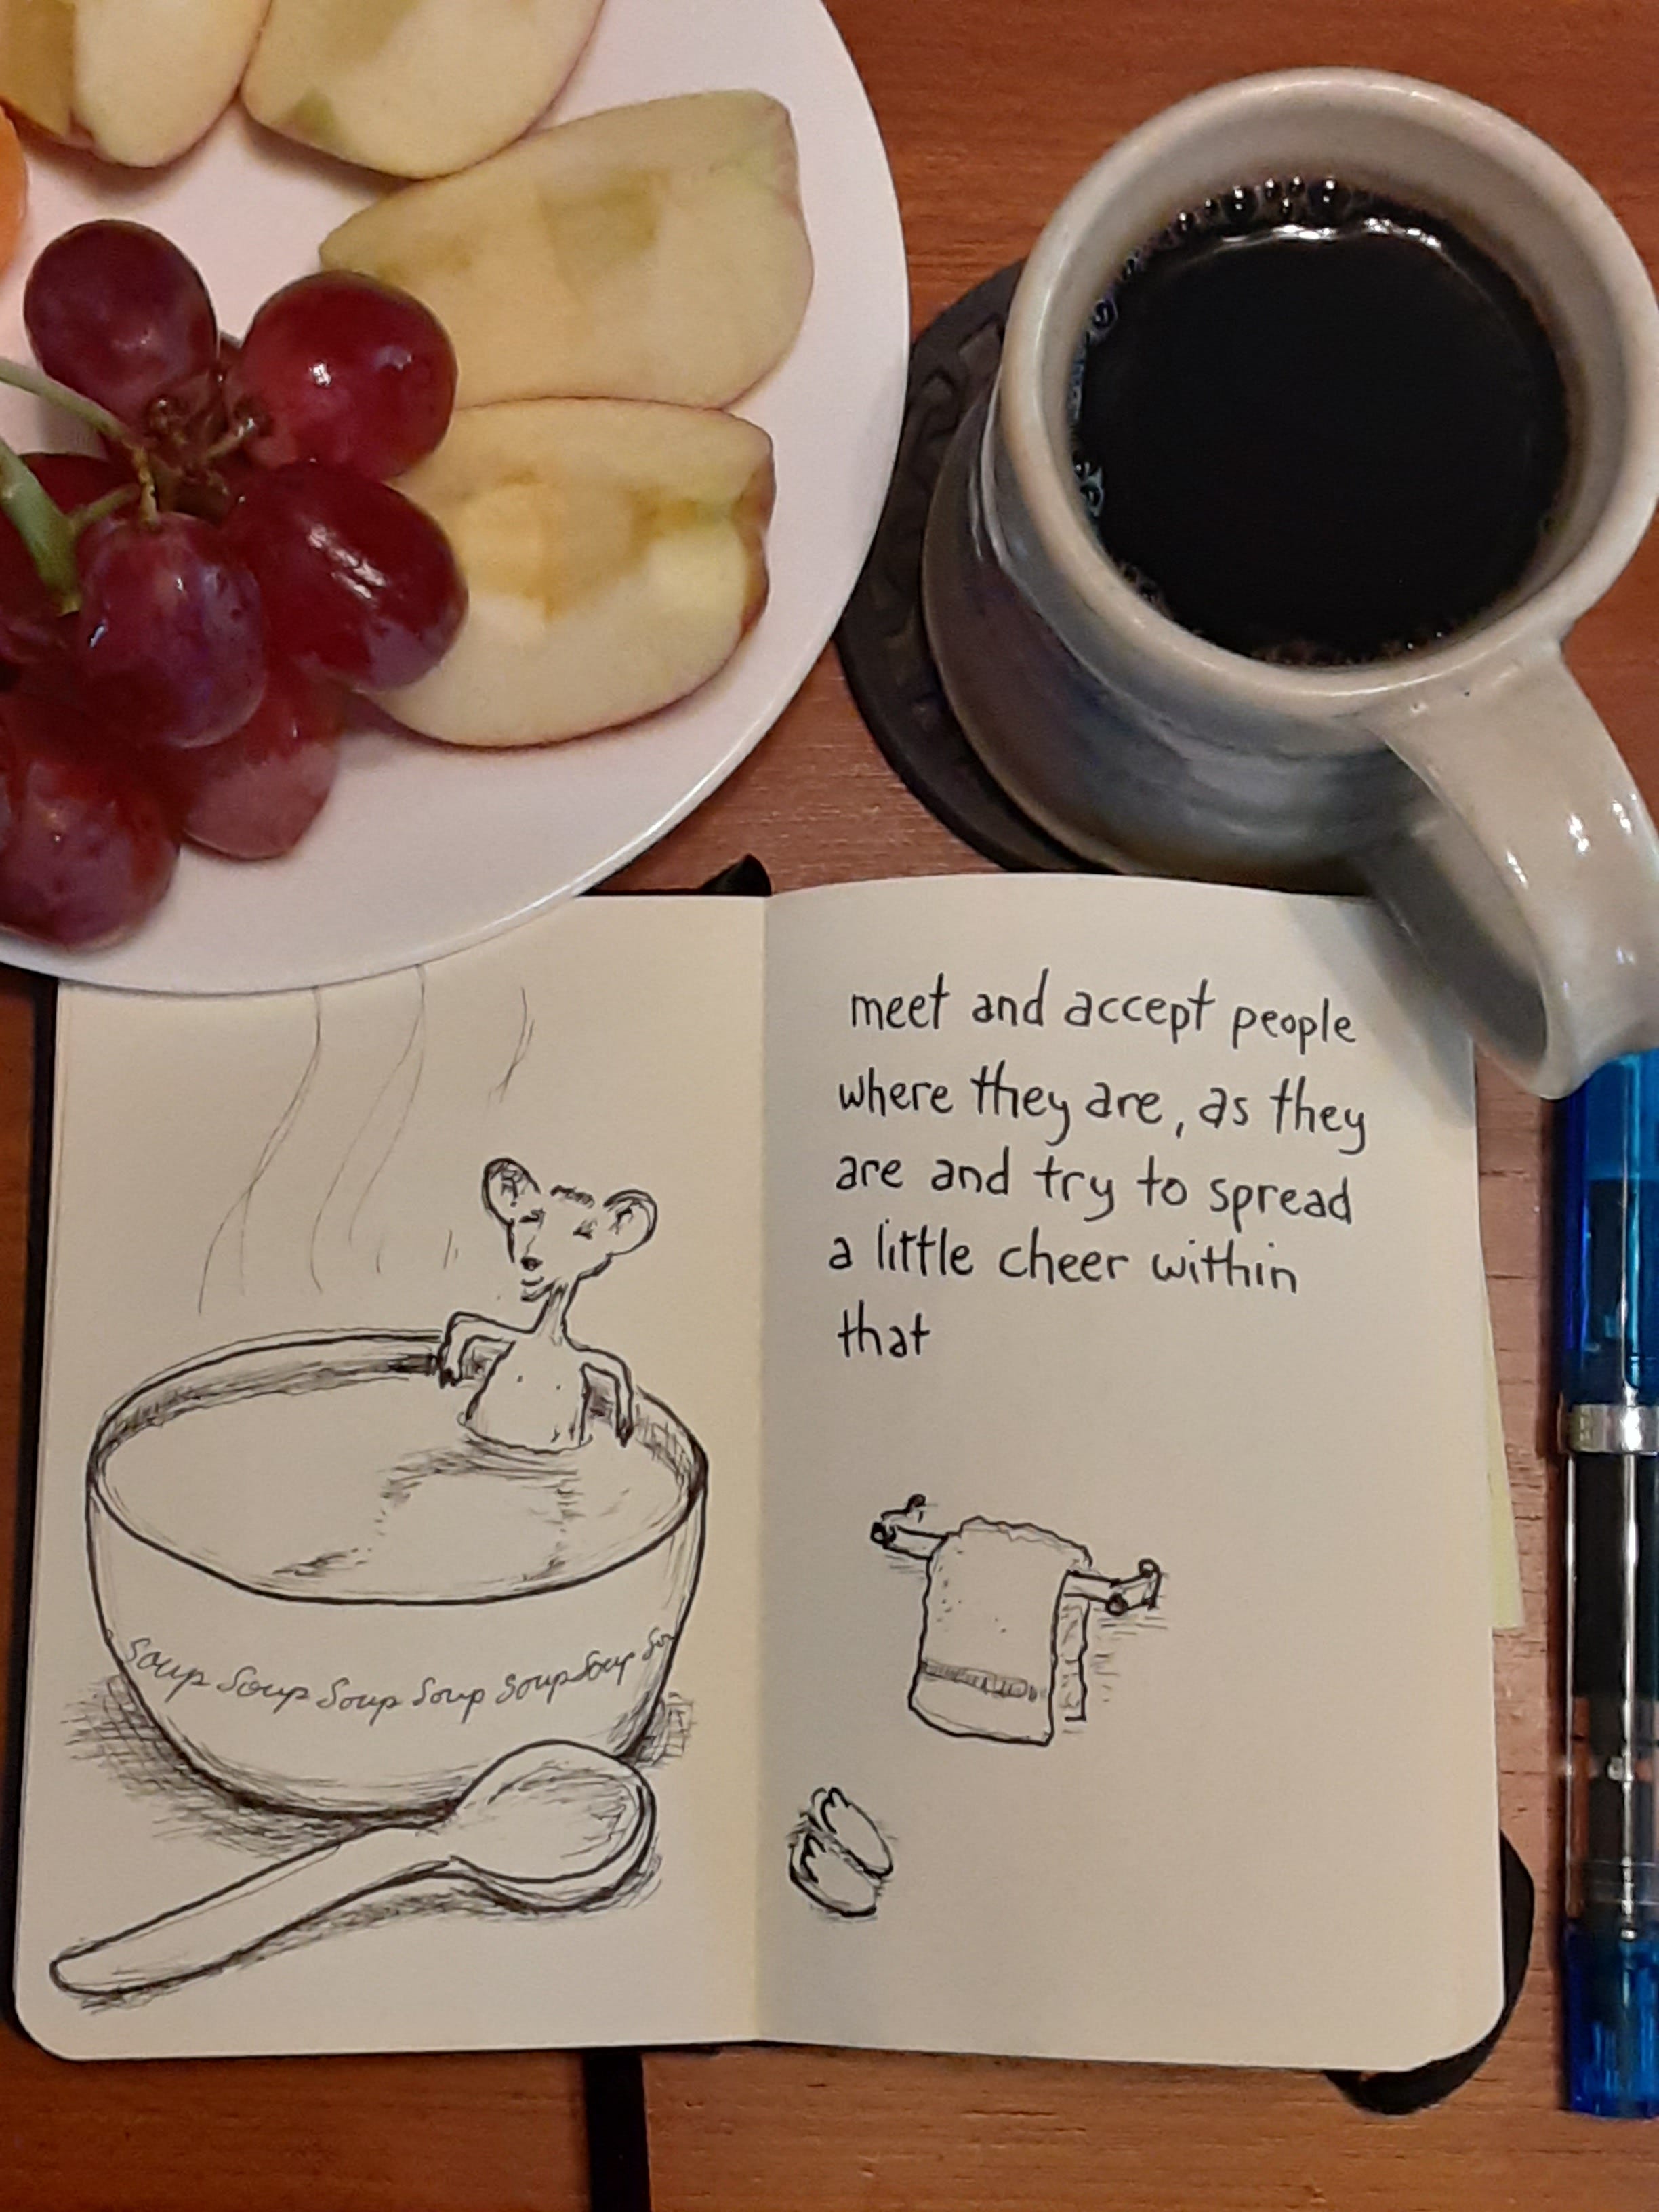 meet and accept people
where they are, as they
are and try to spread
a little cheer within
that
Soup Soup Soup Soup Soup Soup So